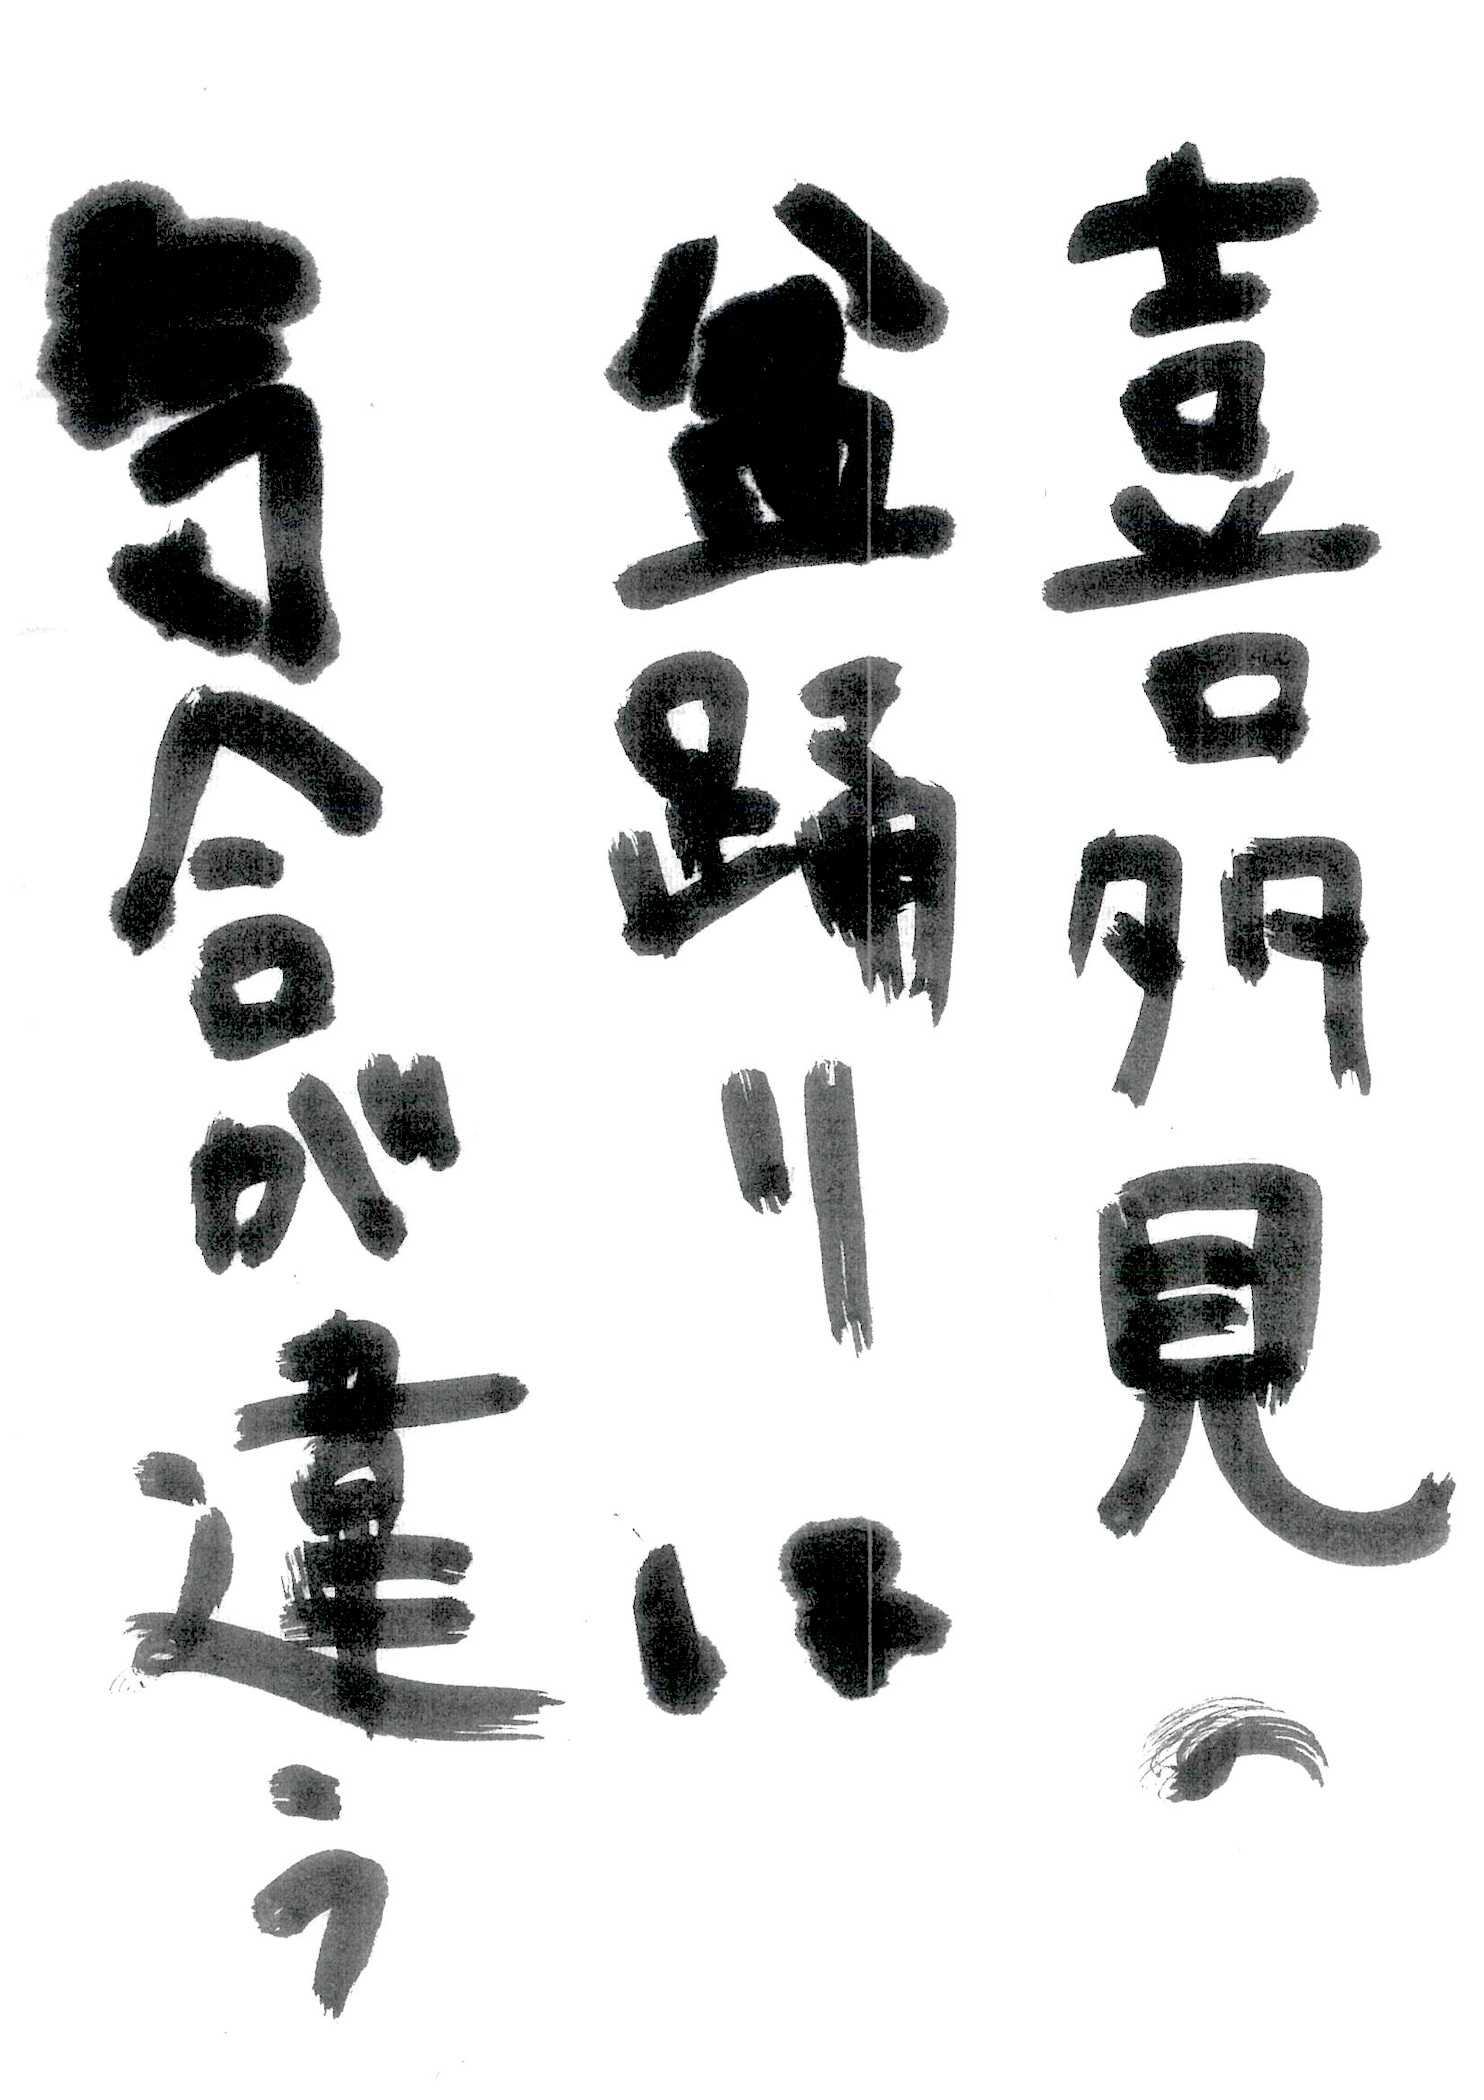 喜多見の
盆踊りは
気合が違う